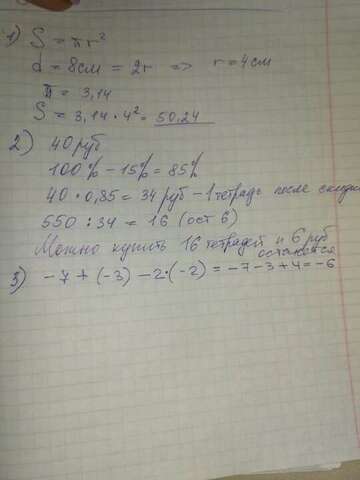 1) S = πr²
d = 8см = 2r => r = 4см
π = 3,14
S = 3,14 · 4² = 50,24
2) 40 руб
100% - 15% = 85%
40 · 0,85 = 34 руб - 1 тетрадь после скидки
550 : 34 = 16 (ост 6)
Можно купить 16 тетрадей и 6 руб
останется
3) -7 + (-3) - 2·(-2) = -7 - 3 + 4 = -6